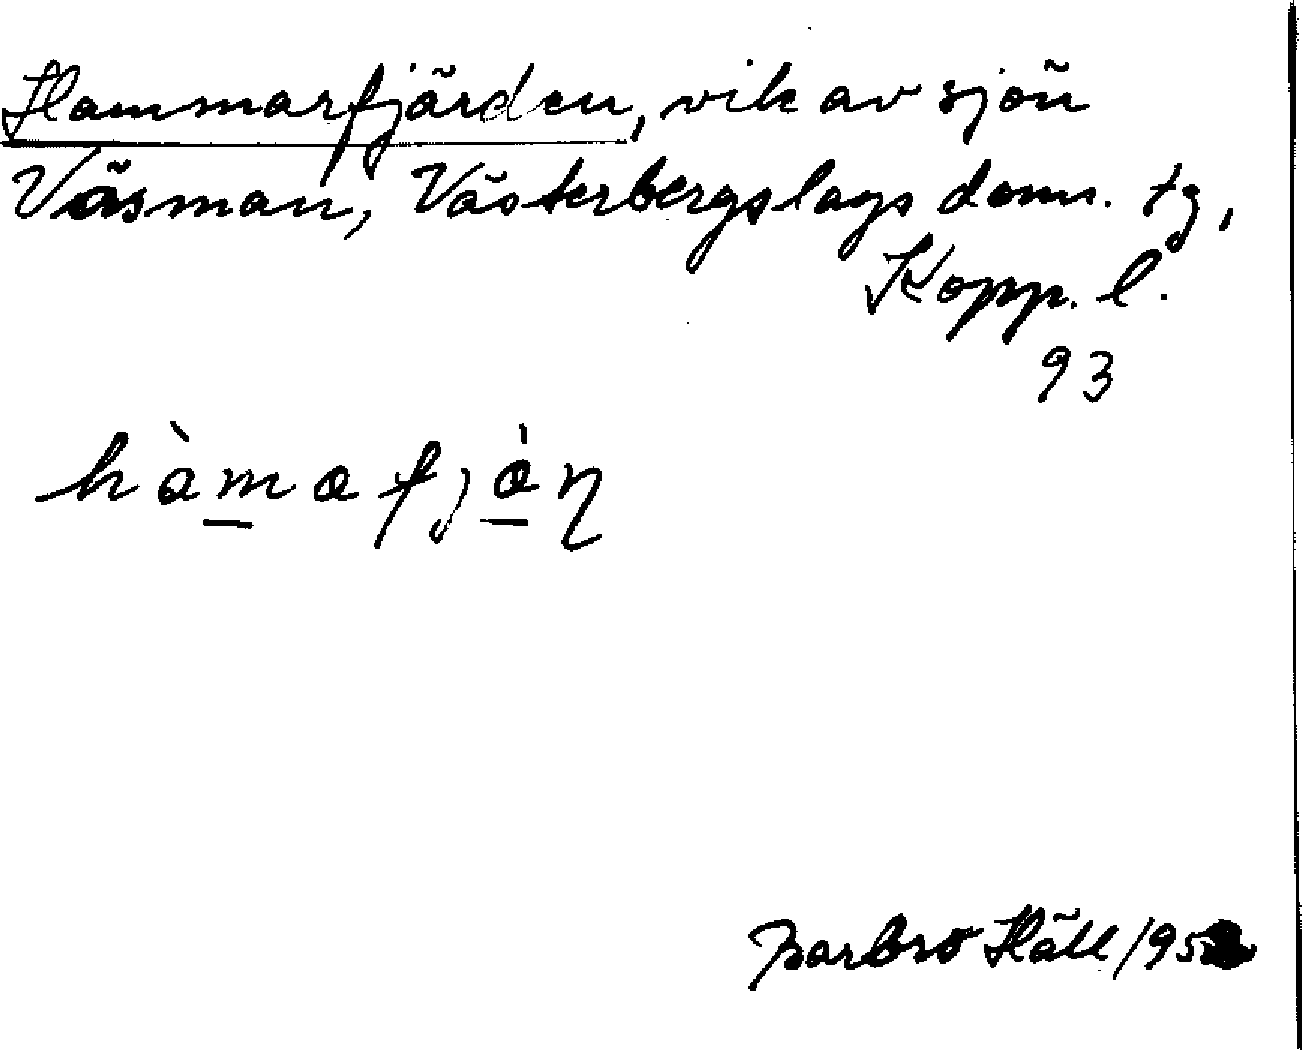 Hammarfjärden, vik av sjön
Väsman, Västerbergslags doms. tg,
Kopp. l.
93
hàmafjàɳ
Barbro Häll 195